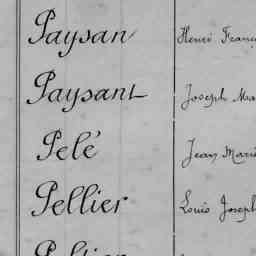 Paysan Henri Franç
Paysant Joseph Mar
Pelé Jean Mari
Pellier Louis Joseph
Peltier